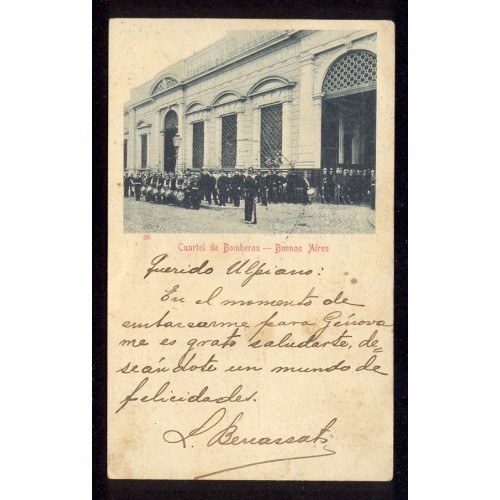 35
Cuartel de Bomberos — Buenos Aires
Querido Ulpiano:
En el momento de
embarcarme para Génova
me es grato saludarte, de=
seándote un mundo de
felicidades.
L. Benassati